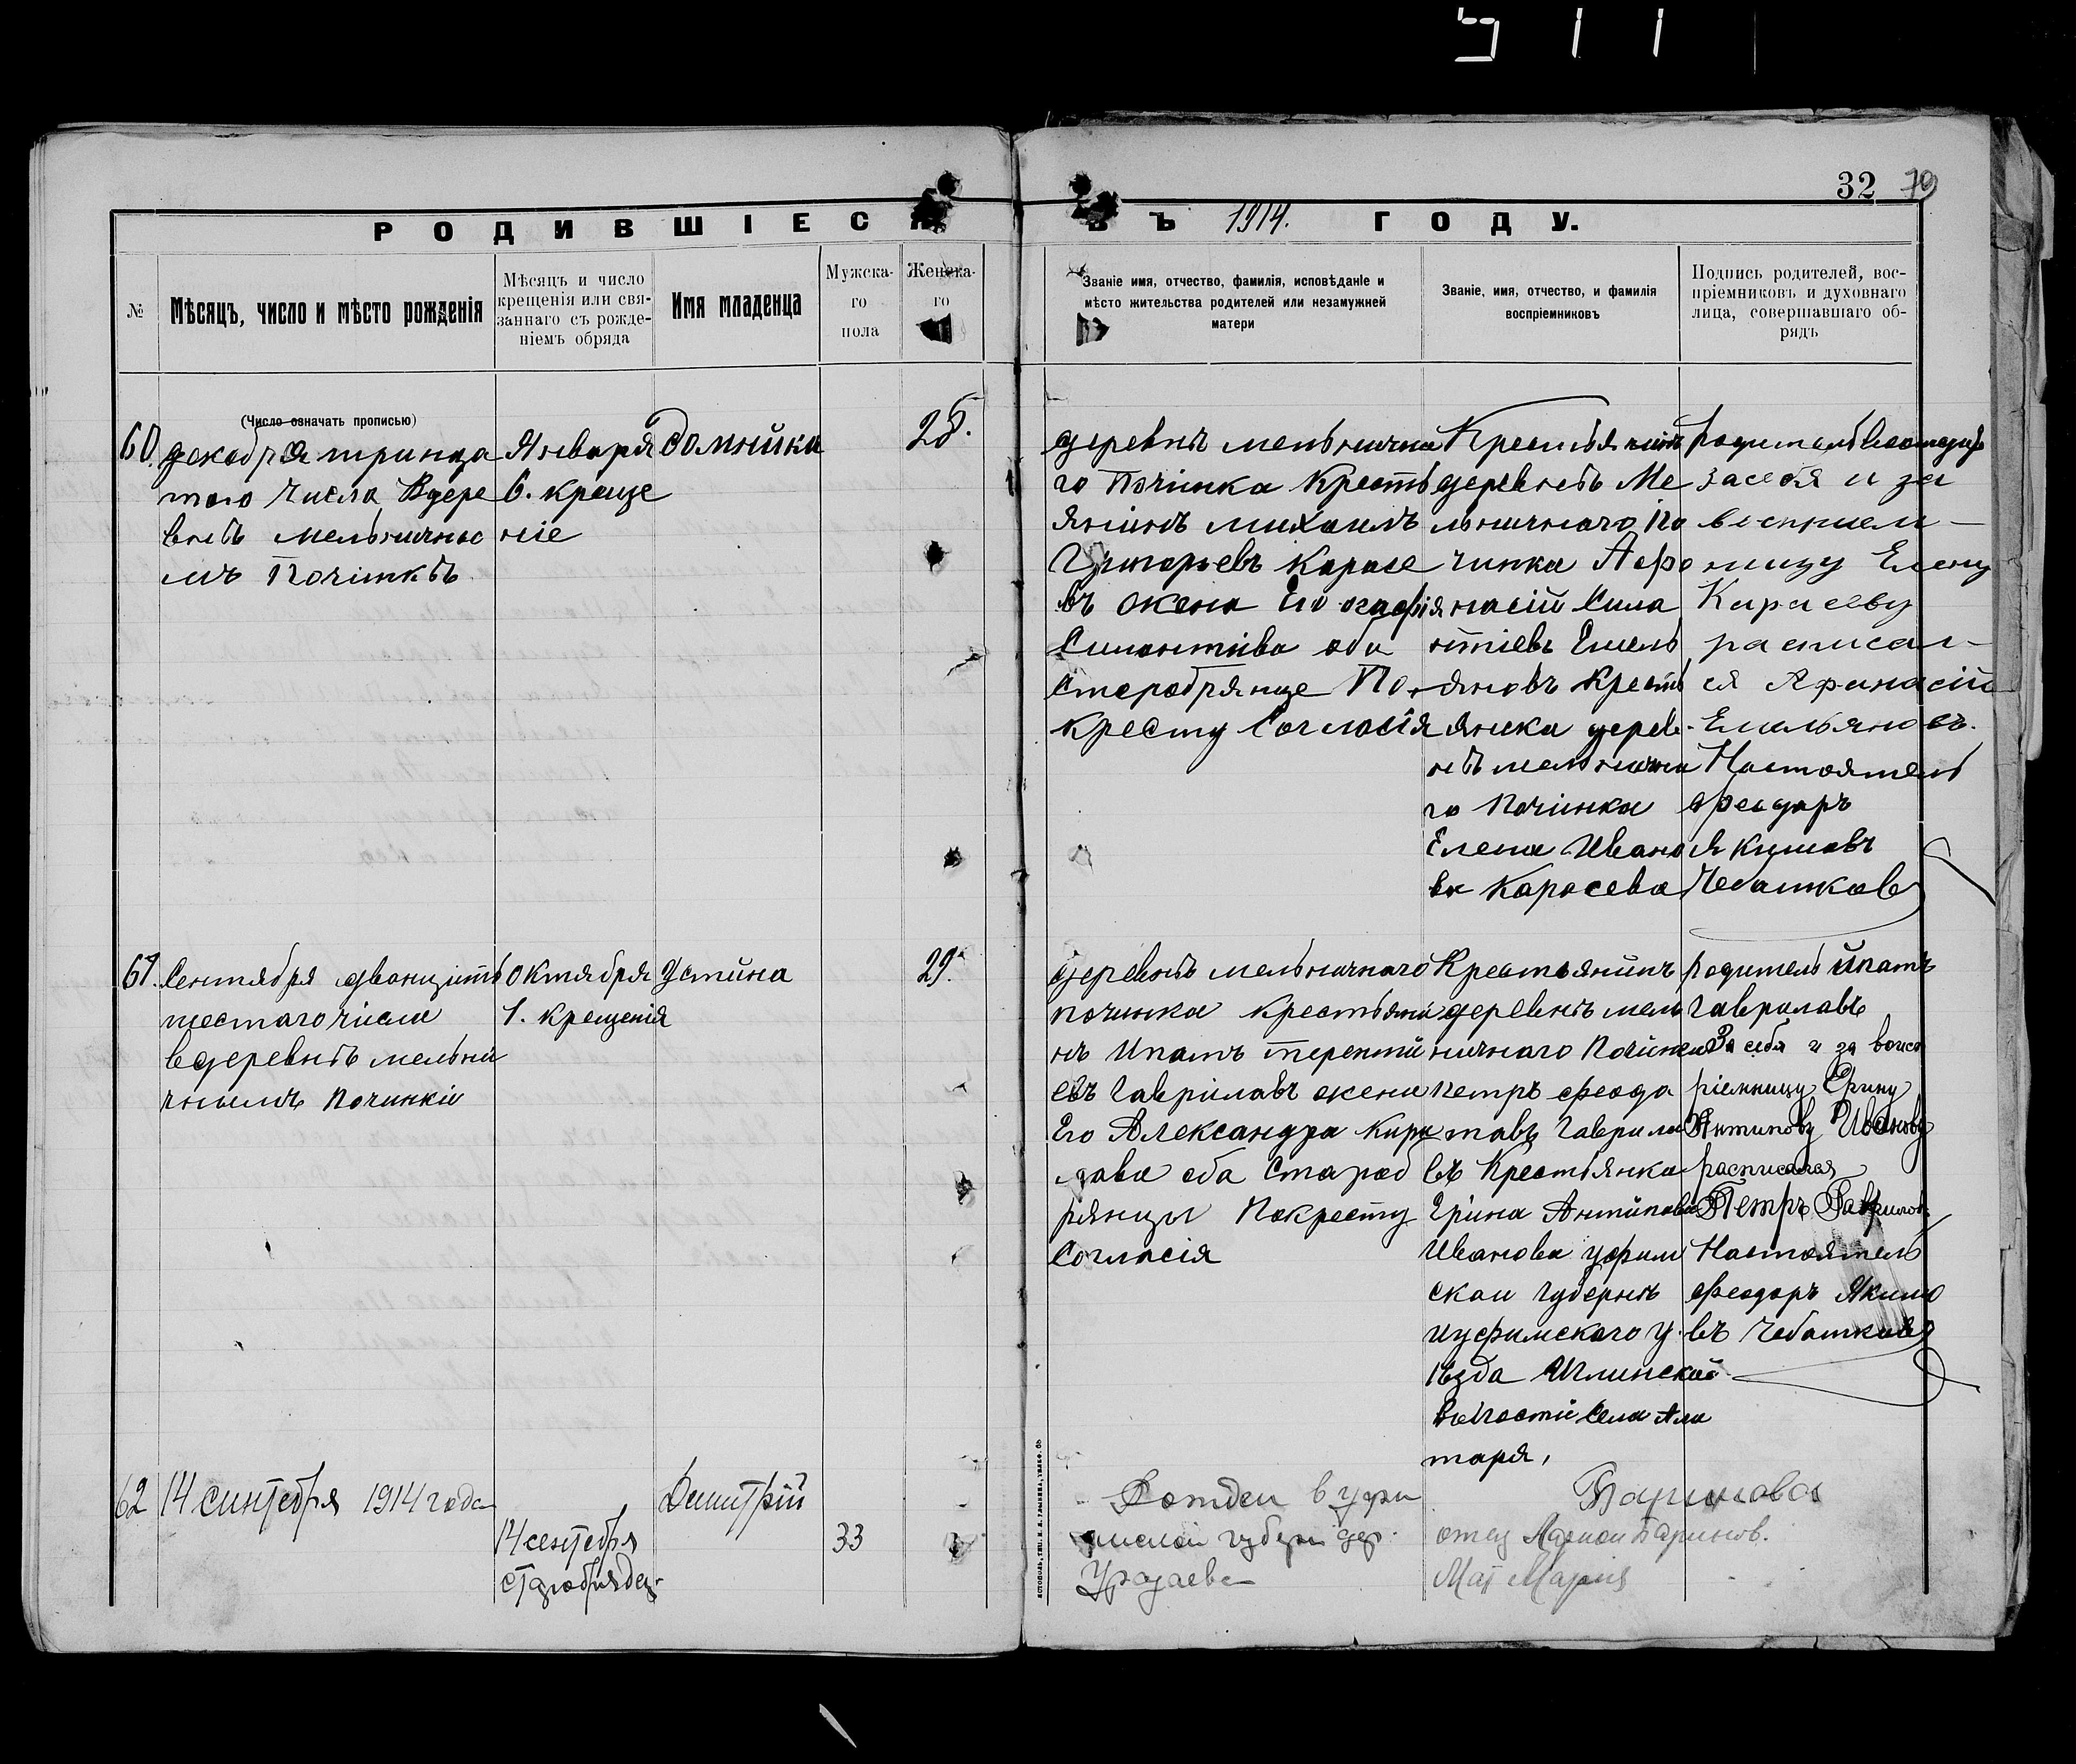 32 70
РОДИВШІЕСЯ ВЪ 1914. ГОДУ.
№
Мѣсяцъ, число и мѣсто рожденія
Мѣсяцъ и число
крещенія или свя-
заннаго съ рожде-
ніемъ обряда
Имя младенца
Мужска-
го
пола
Женска-
го
Званіе имя, отчество, фамилія, исповѣданіе и
мѣсто жительства родителей или незамужней
матери
Званіе, имя, отчество, и фамилія
воспріемниковъ
Подпись родителей, вос-
пріемниковъ и духовнаго
лица, совершавшаго об-
рядъ
(Число означать прописью)
60.
декабря тринца
таго числа Вдере
внѣ мельнично
мъ Починкѣ
Января
6. креще
ніе
Домнйка
28.
деревнѣ мельнична
го Починка Кресть
янинъ михаилъ
Григорьевъ Карасе
въ жена Его агафія
Силантіва оба
Старобрянце По
Кресту Согласія
Крестьянинъ
деревнѣ Ме
льничнаго По
чинка Афо
насій Сила
нтіевъ Емель
яновъ Кресть
янка дерев
нѣ мельнична
го Починка
Елена Ивано
ва Карасева
родитель
засебя и за
восприем-
ницу Елену
Карасеву
расписал-
ся Афанасій
Емильяновъ.
Настоятель
Феодаръ
Якимовъ
Чебатков
61.
Сентября дванцать
шестаго числа
вдеревнѣ мельни
чнымъ починкіи
октября
1. крещенія
Устйна
29.
деревнѣ мельничнаго
починка Крестьяни
нъ Ипатъ терентй
евъ Гаврилавъ жена
Его Александра Кири
лава оба Староб
рянцы Покресту
Согласія
Крестьянинъ
деревнѣ мель
ничнаго Почйнка
петръ феода
тавъ Гаврила
въ Крестьянка
Ерина Антипова
Иванова уфим
скаи губернѣ
иуфимскаго у
ѣзда Иглинскай
волости села Ала
таря,
родитель ипатъ
Гаврилавъ
За себя и за восп
ріемницу Ерину
Антипову Иванову
расписался
Петръ Гаврилов.
Настоятель
Феодаръ Якимо
въ Чебаткавъ
62
14 синтебря 1914 года
14 сентебря
старобрядец.
Димитрій
33
Рожден в уфи
мской губерн дер.
Уразаева
Баринова
отец Ларион Баринов.
Мат Мария